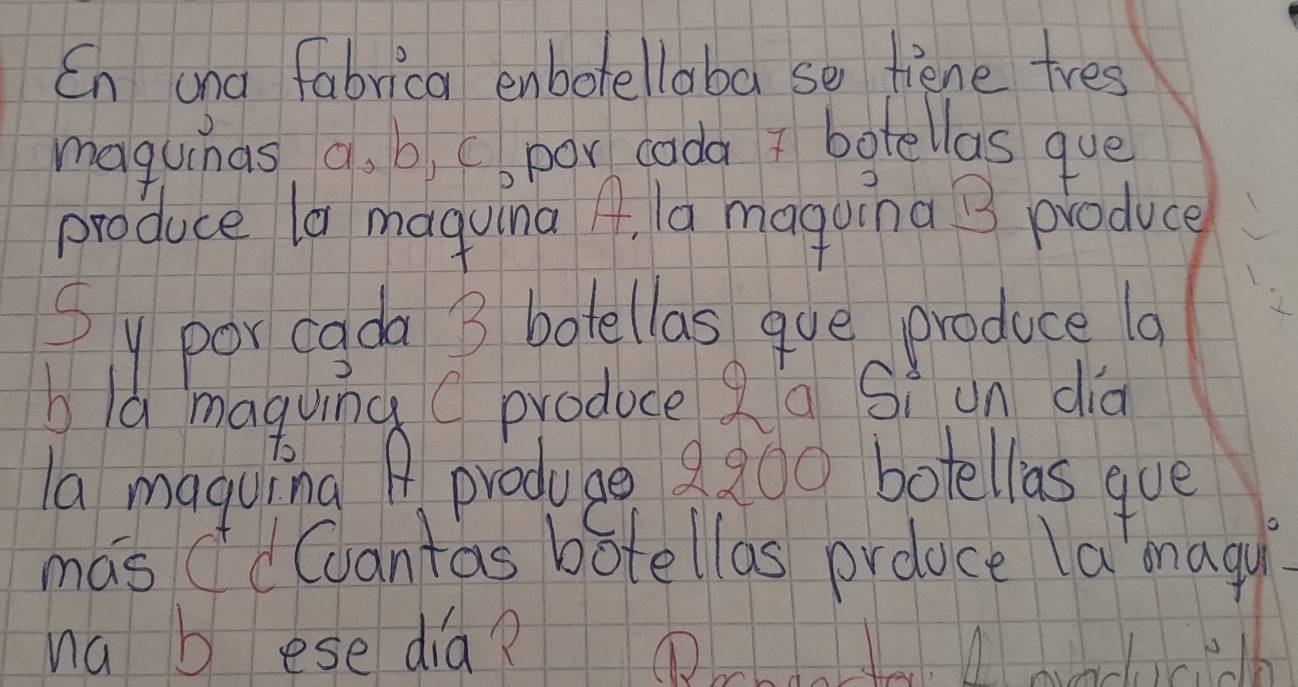 En una fabrica enbotellaba se tiene tres
maquinas a, b, c, por cada 7 botellas que
produce la maquina A, la maquina B produce
5 y por cada 3 botellas que produce la
b la maquina C produce 2 a Si un día
la maquina A produge 2200 botellas que
más C d Cuantas botellas prduce la maqui-
na b ese día?